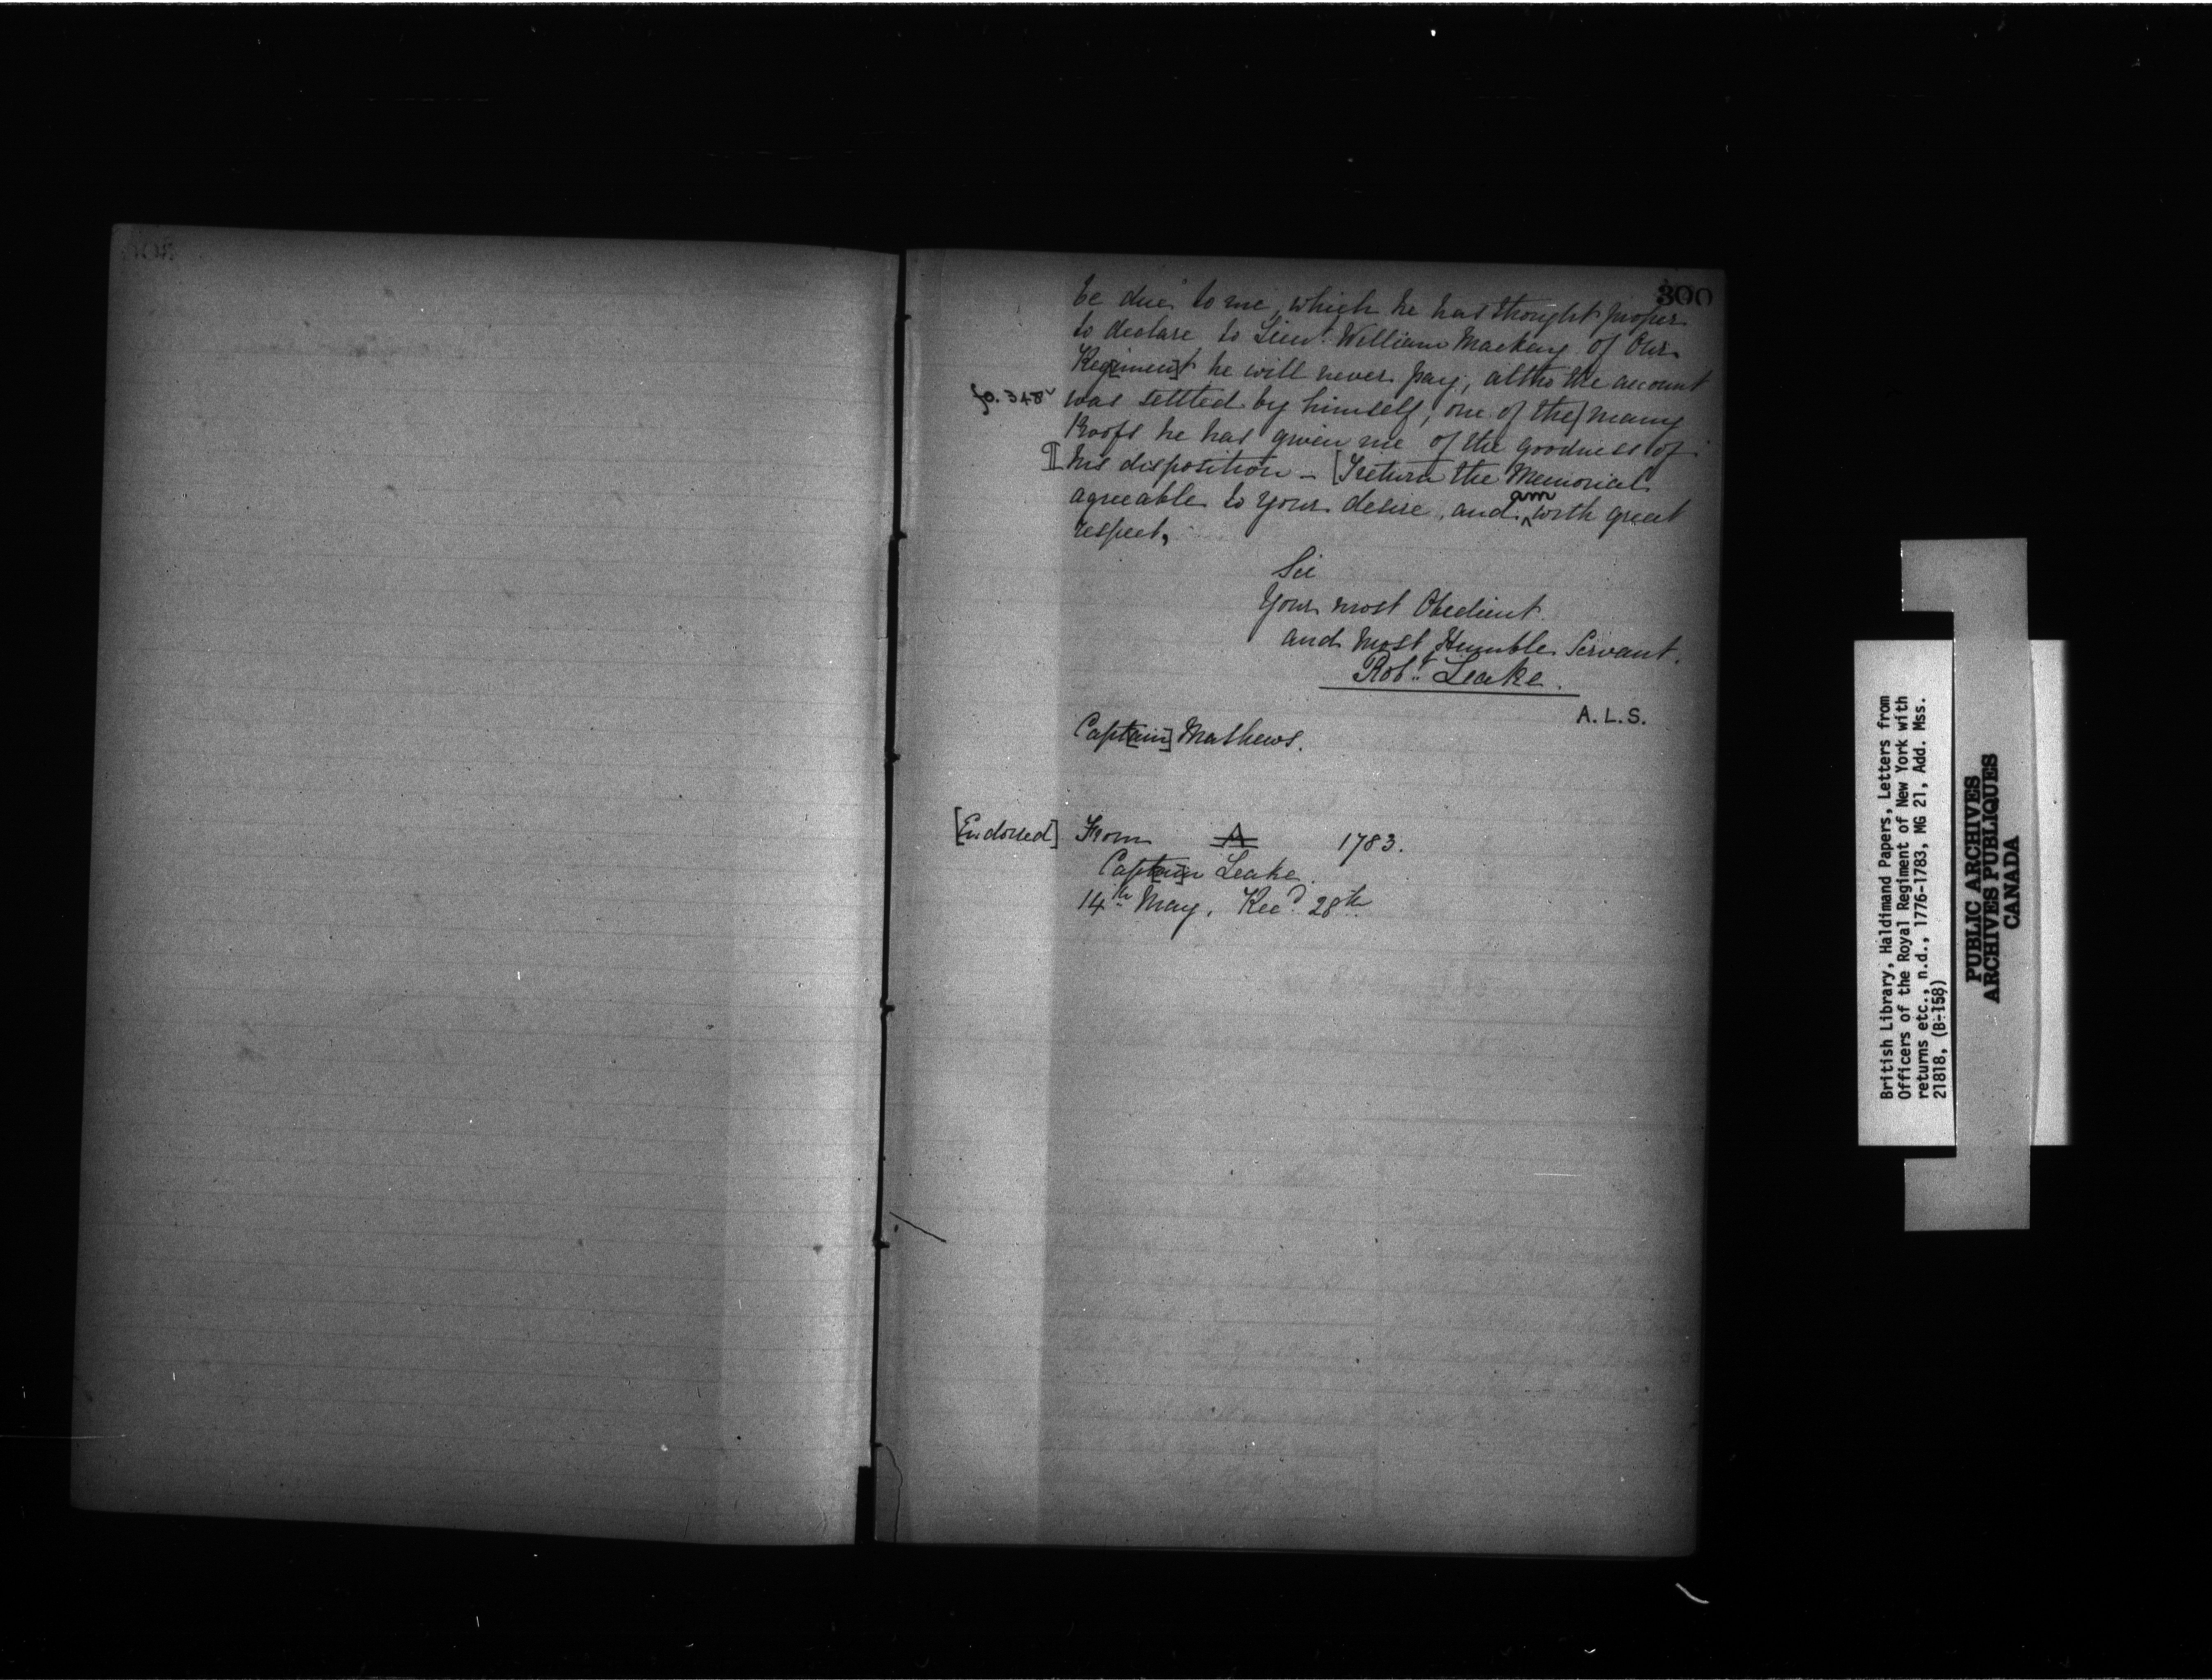 300
be due to me, which he has thought proper
to declare to Lieut. William Mackay of Our
Reg[imen]t he will never pay, altho the account
fo. 348v was settled by himself, one of the | many
Proofs he has given me of the goodness of
¶ his disposition – [I return the Memorial
agreable to your desire, and am with great
respect,
Sir
Your most Obedient
and most Humble Servant.
Robt. Leake.
A.L.S.
Capt[ain] Mathews.
[Endorsed] From A 1783.
Capt[ai]n Leake.
14th May, Recd. 28th
British Library, Haldimand Papers, Letters from
Officers of the Royal Regiment of New York with
returns etc., n.d., 1776-1783, MG 21, Add. Mss.
21818, (B-158)
PUBLIC ARCHIVES
ARCHIVES PUBLIQUES
CANADA